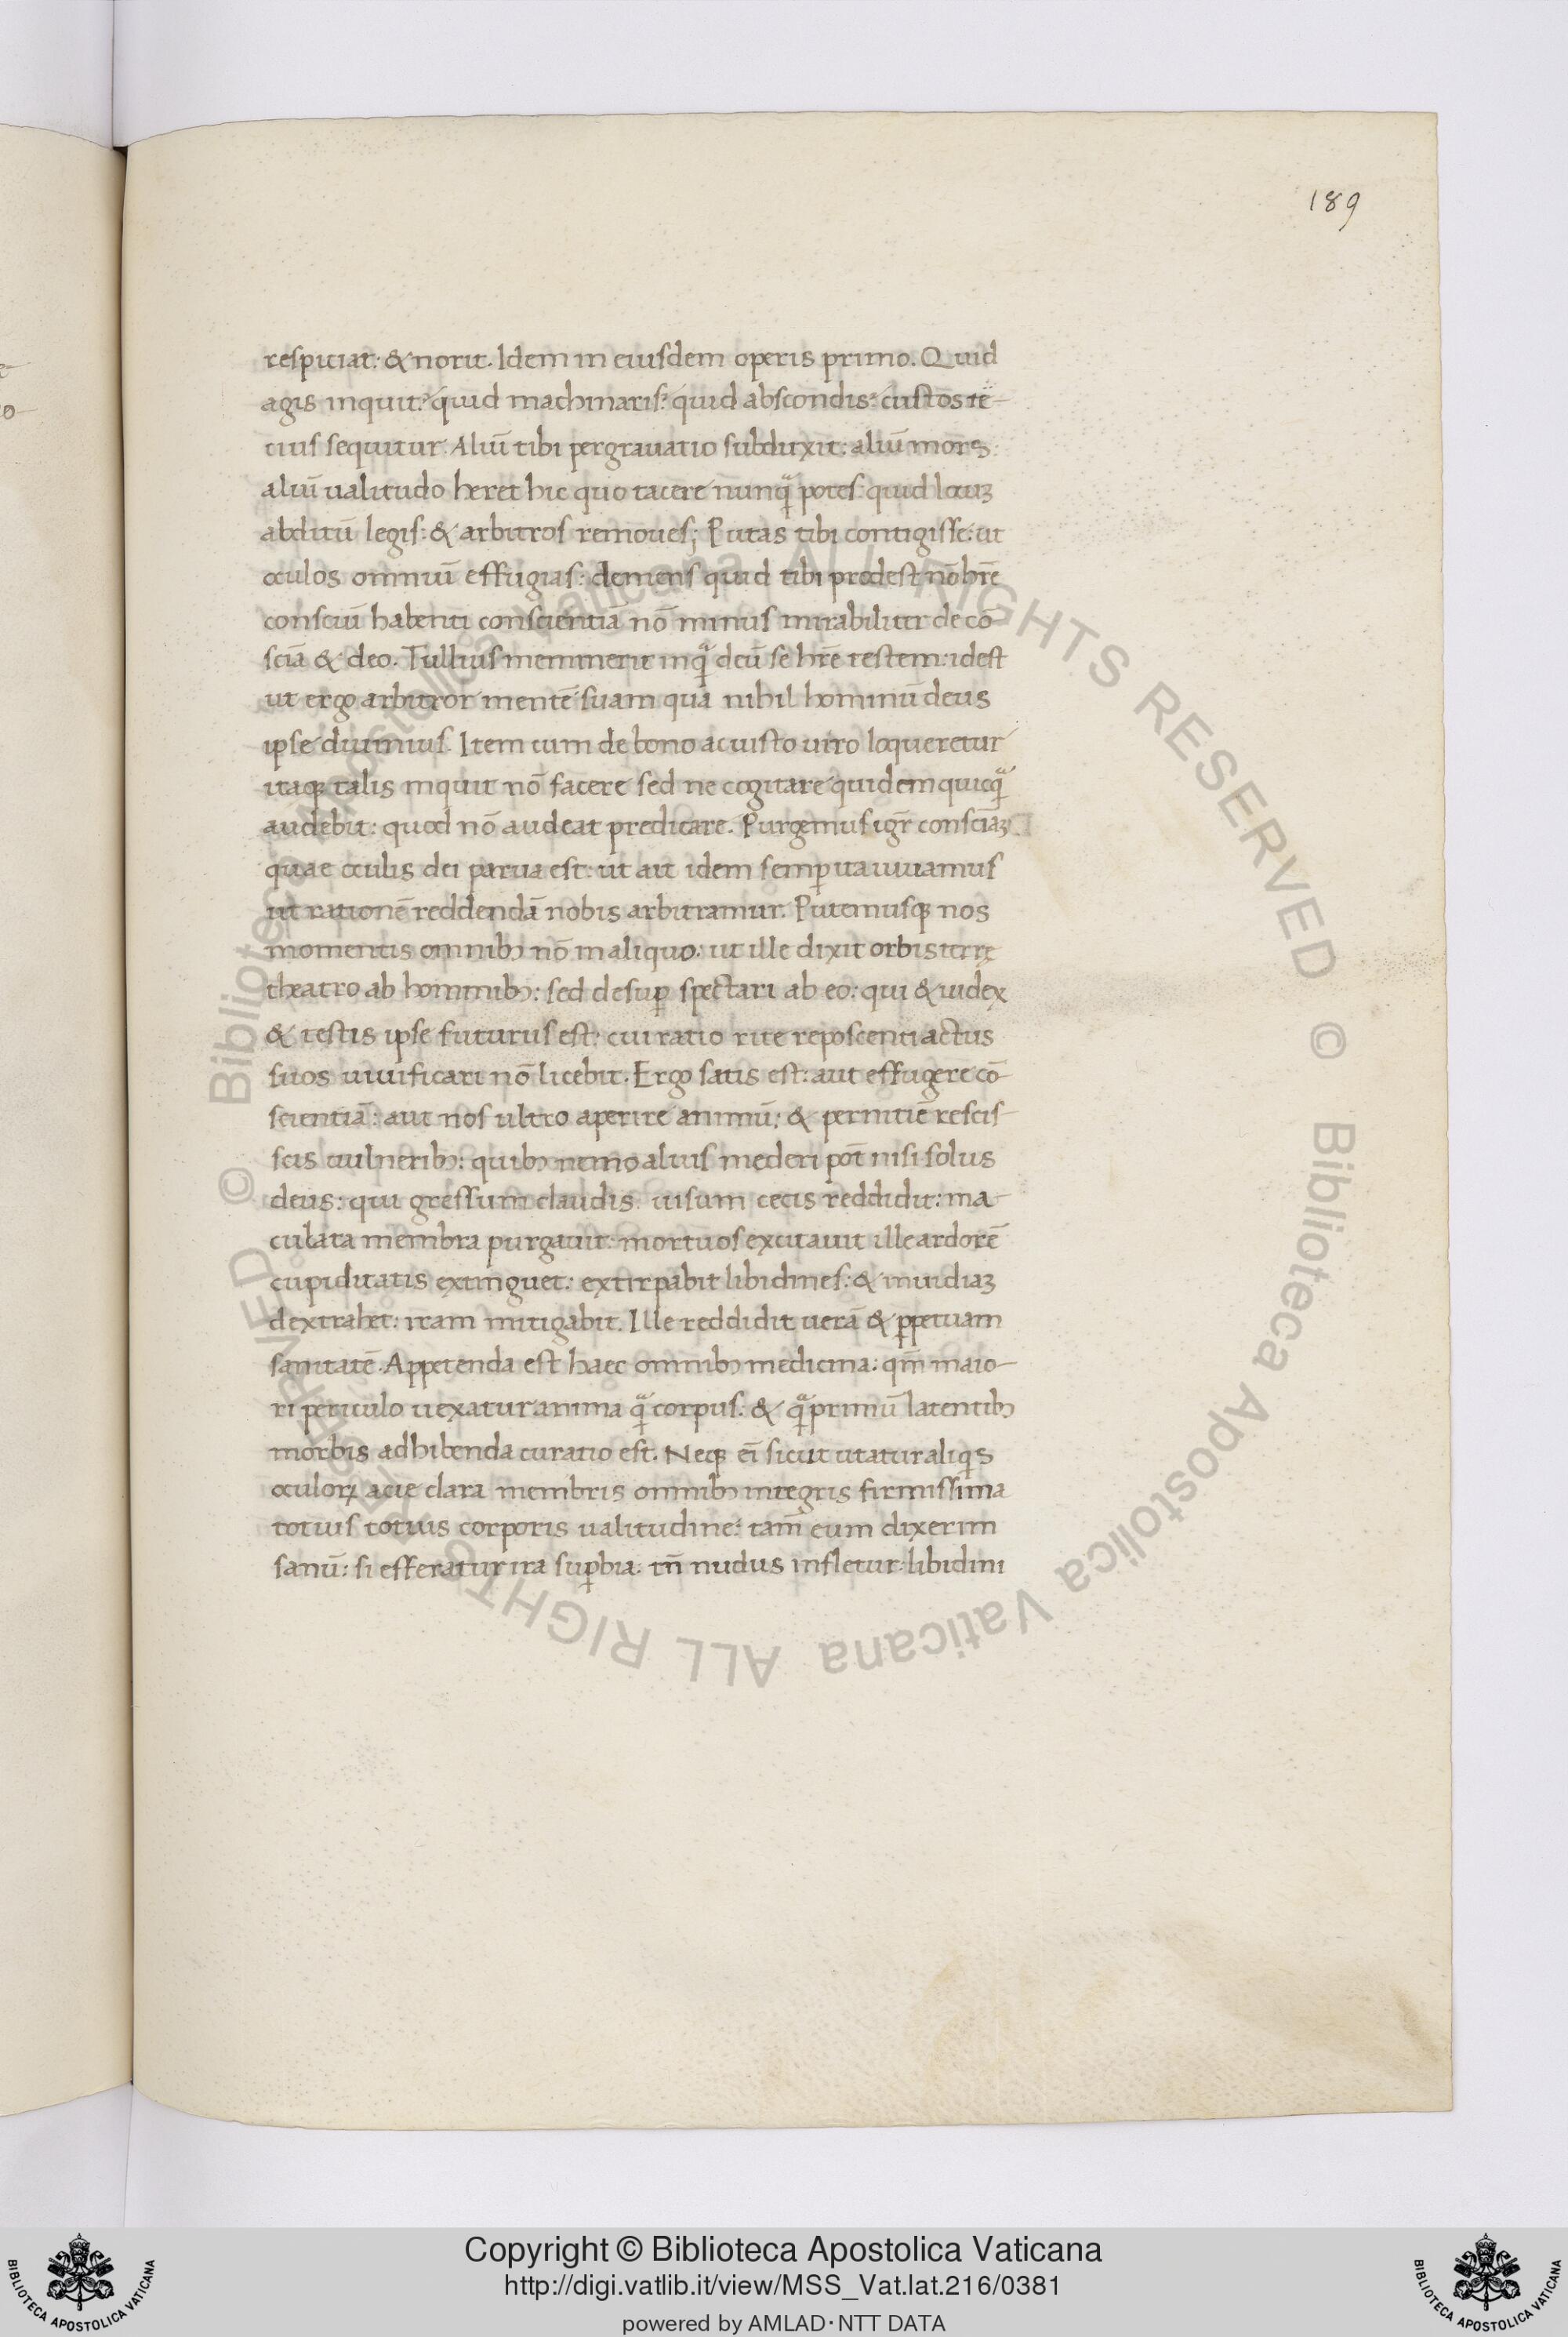 189
respiciat: & norit. Idem in eiusdem operis primo. Quid
agis inquit? quid machinaris? quid abscondis? custos te
tuus sequitur. Aliū tibi pergrauatio subduxit: aliū mors
aliū ualitudo heret hic quo tacere nunqͣ potes quid locuꝫ
abditū legis: & arbitros remoues; Putas tibi contigisse: ut
oculos omniū effugias: demens quid tibi prodest nō hr̄e
consciū habenti conscientiā nō minus mirabiliter de cō-
sciā & deo. Tullius meminerit inqͣ deū se hr̄e testem: idest
ut ergo arbitror mentē suam qua nihil hominū deus
ipse diuinius. Item cum de bono ac iusto uiro loqueretur
itaqꝫ talis inquit nō facere sed ne cogitare quidem quicqͣ
audebit: quod nō audeat predicare. Purgemus igr̄ consciāꝫ
quae oculis dei parua est: ut ait idem semꝑ ita uiuamus
ut rationē reddendā nobis arbitramur. Putemusqꝫ nos
momentis omnibꝫ nō in aliquo: ut ille dixit orbis terrę
theatro ab hominibꝫ: sed desuꝑ spectari ab eo: qui & iudex
& testis ipse futurus est: cui ratio rite reposcenti actus
suos uiuificari nō licebit. Ergo satis est: aut effugere cō-
scientiā: aut nos ultro aperire animū: & pernitiē rescis-
scis uulneribꝫ: quibꝫ nemo alius mederi pot̄ nisi solus
deus: qui gressum claudis uisum cecis reddidit: ma-
culata membra purgauit: mortuos excitauit ille ardorē
cupiditatis extinguet: extirpabit libidines: & inuidiaꝫ
dextrahet: iram mitigabit. Ille reddidit uerā & ꝑpetuam
sanitatē. Appetenda est haec omnibꝫ medicina: qm̄ maio-
ri periculo uexatur anima qͣ corpus: & qͣprimū latentibꝫ
morbis adhibenda curatio est. Neqꝫ ei̅ sicut utatur aliqis
oculoꝝ acie clara membris omnibꝫ integris firmissima
totius totius corporis ualitudine: tam̄ eum dixerim
sanū: si efferatur ira suꝑbia: tn̄ nudus infletur: libidini
© Biblioteca Apostolica Vaticana ALL RIGHTS RESERVED © Biblioteca Apostolica Vaticana ALL RIGHTS RESERVED
BIBLIOTECA APOSTOLICA VATICANA
Copyright © Biblioteca Apostolica Vaticana
http://digi.vatlib.it/view/MSS_Vat.lat.216/0381
powered by AMLAD·NTT DATA
BIBLIOTECA APOSTOLICA VATICANA